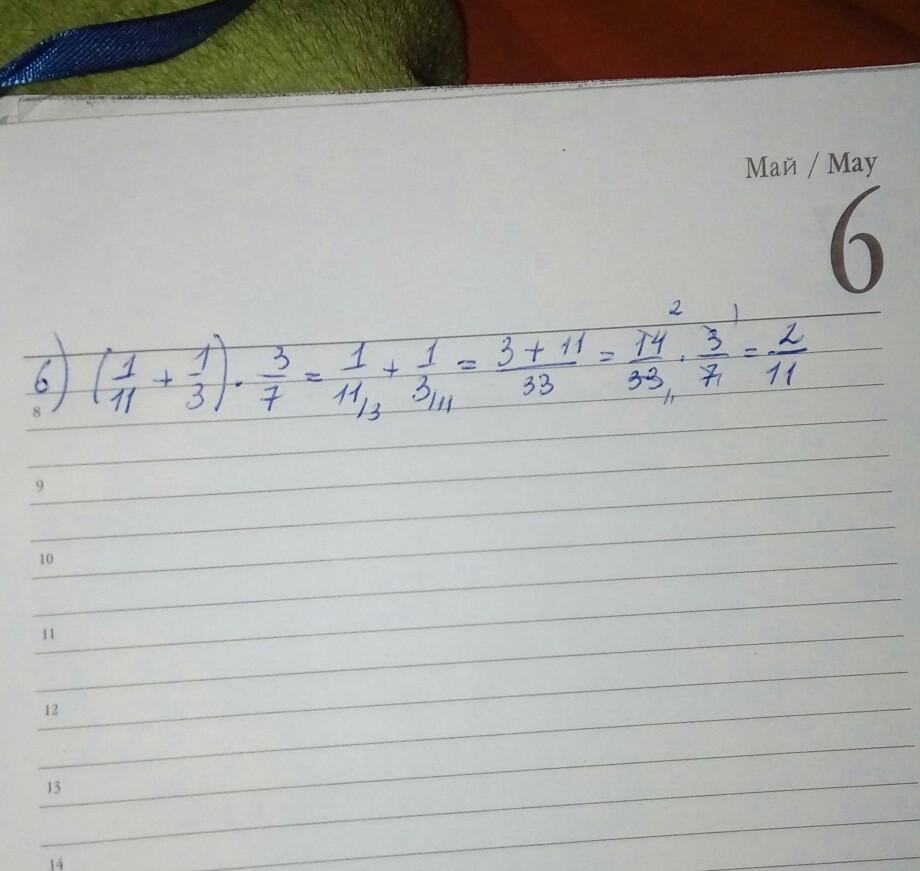 Май / May
6
6) (1/11 + 1/3) · 3/7 = 1/11/3 + 1/3/11 = 3 + 11/33 = 14/33 · 3/7 = 2/11
2 1
11 1
8
9
10
11
12
13
14